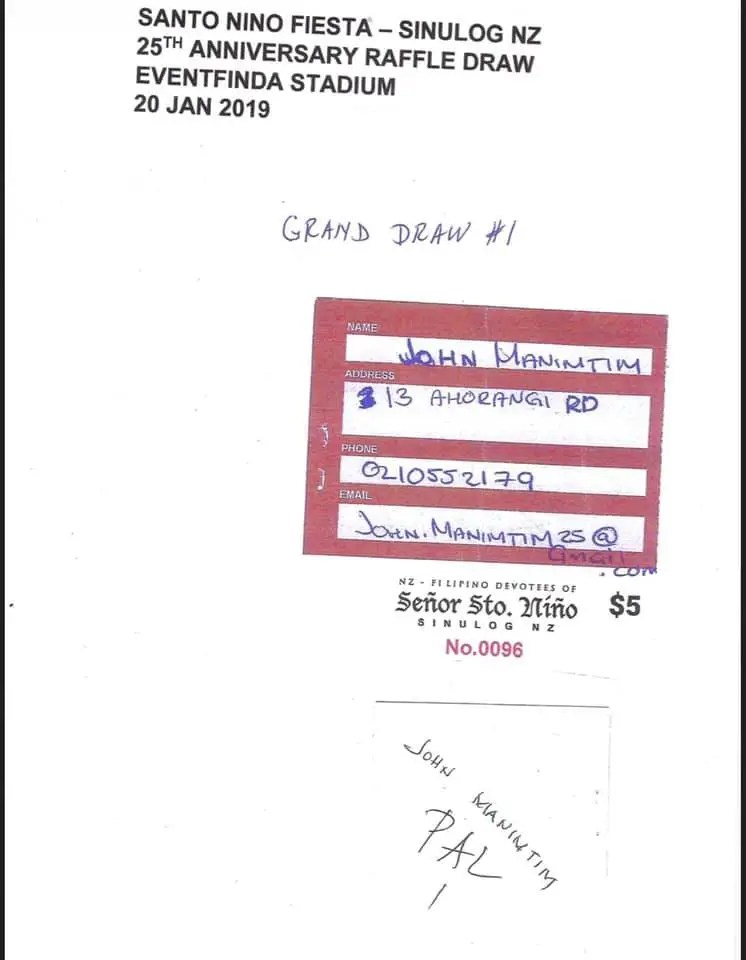 SANTO NINO FIESTA – SINULOG NZ
25TH ANNIVERSARY RAFFLE DRAW
EVENTFINDA STADIUM
20 JAN 2019
GRAND DRAW #1
NAME
JOHN MANIMTIM
ADDRESS
13 AHORANGI RD
PHONE
0210552179
EMAIL
JOHN.MANIMTIM25@
Gmail
.com
NZ - FILIPINO DEVOTEES OF
Señor Sto. Níño $5
SINULOG NZ
No.0096
JOHN MANIMTIM
PAL
1